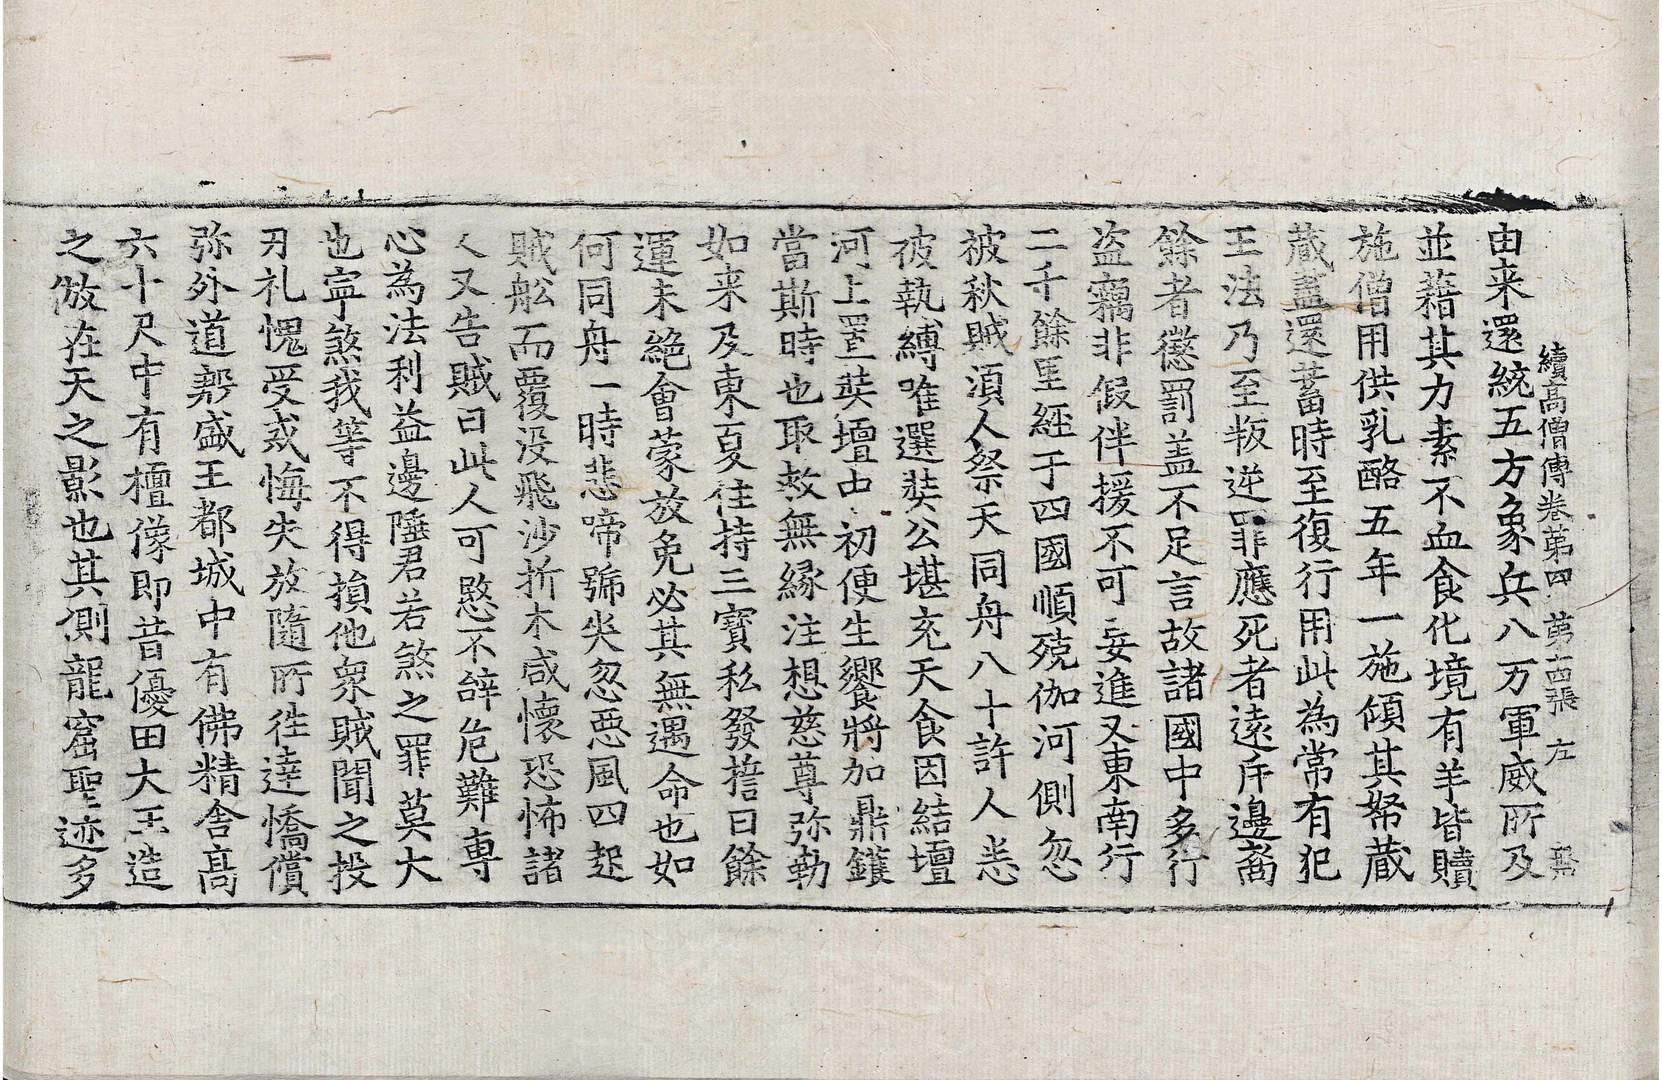 續高僧傳卷第四 第十四張 左
由来還統五方象兵八万軍威所及
並藉其力素不血食化境有羊皆贖
施僧用供乳酪五年一施傾其帑藏
藏盡還蓄時至復行用此為常有犯
王法乃至叛逆罪應死者遠斥邊裔
餘者懲罰盖不足言故諸國中多行
盗竊非假伴援不可妄進又東南行
二千餘里經于四國順殑伽河側忽
被秋賊湏人祭天同舟八十許人悉
彼執縛唯選奘公堪充天食因結壇
河上置奘壇中初便生饗將加鼎鑊
當斯時也取救無縁注想慈尊弥勒
如来及東夏住持三寳私發誓曰餘
運未絶會蒙放免必其無遇命也如
何同舟一時悲啼號哭忽惡風四起
賊舩而覆没飛沙折木咸懷恐怖諸
人又告賊曰此人可愍不辭危難專
心為法利益邊陲君若煞之罪莫大
也寜煞我等不得損他衆賊聞之投
刃礼愧受戒悔失放隨所往達憍償
弥外道㔟盛王都城中有佛精舎髙
六十尺中有檀像即昔優田大王造
之倣在天之影也其側龍窟聖迹多